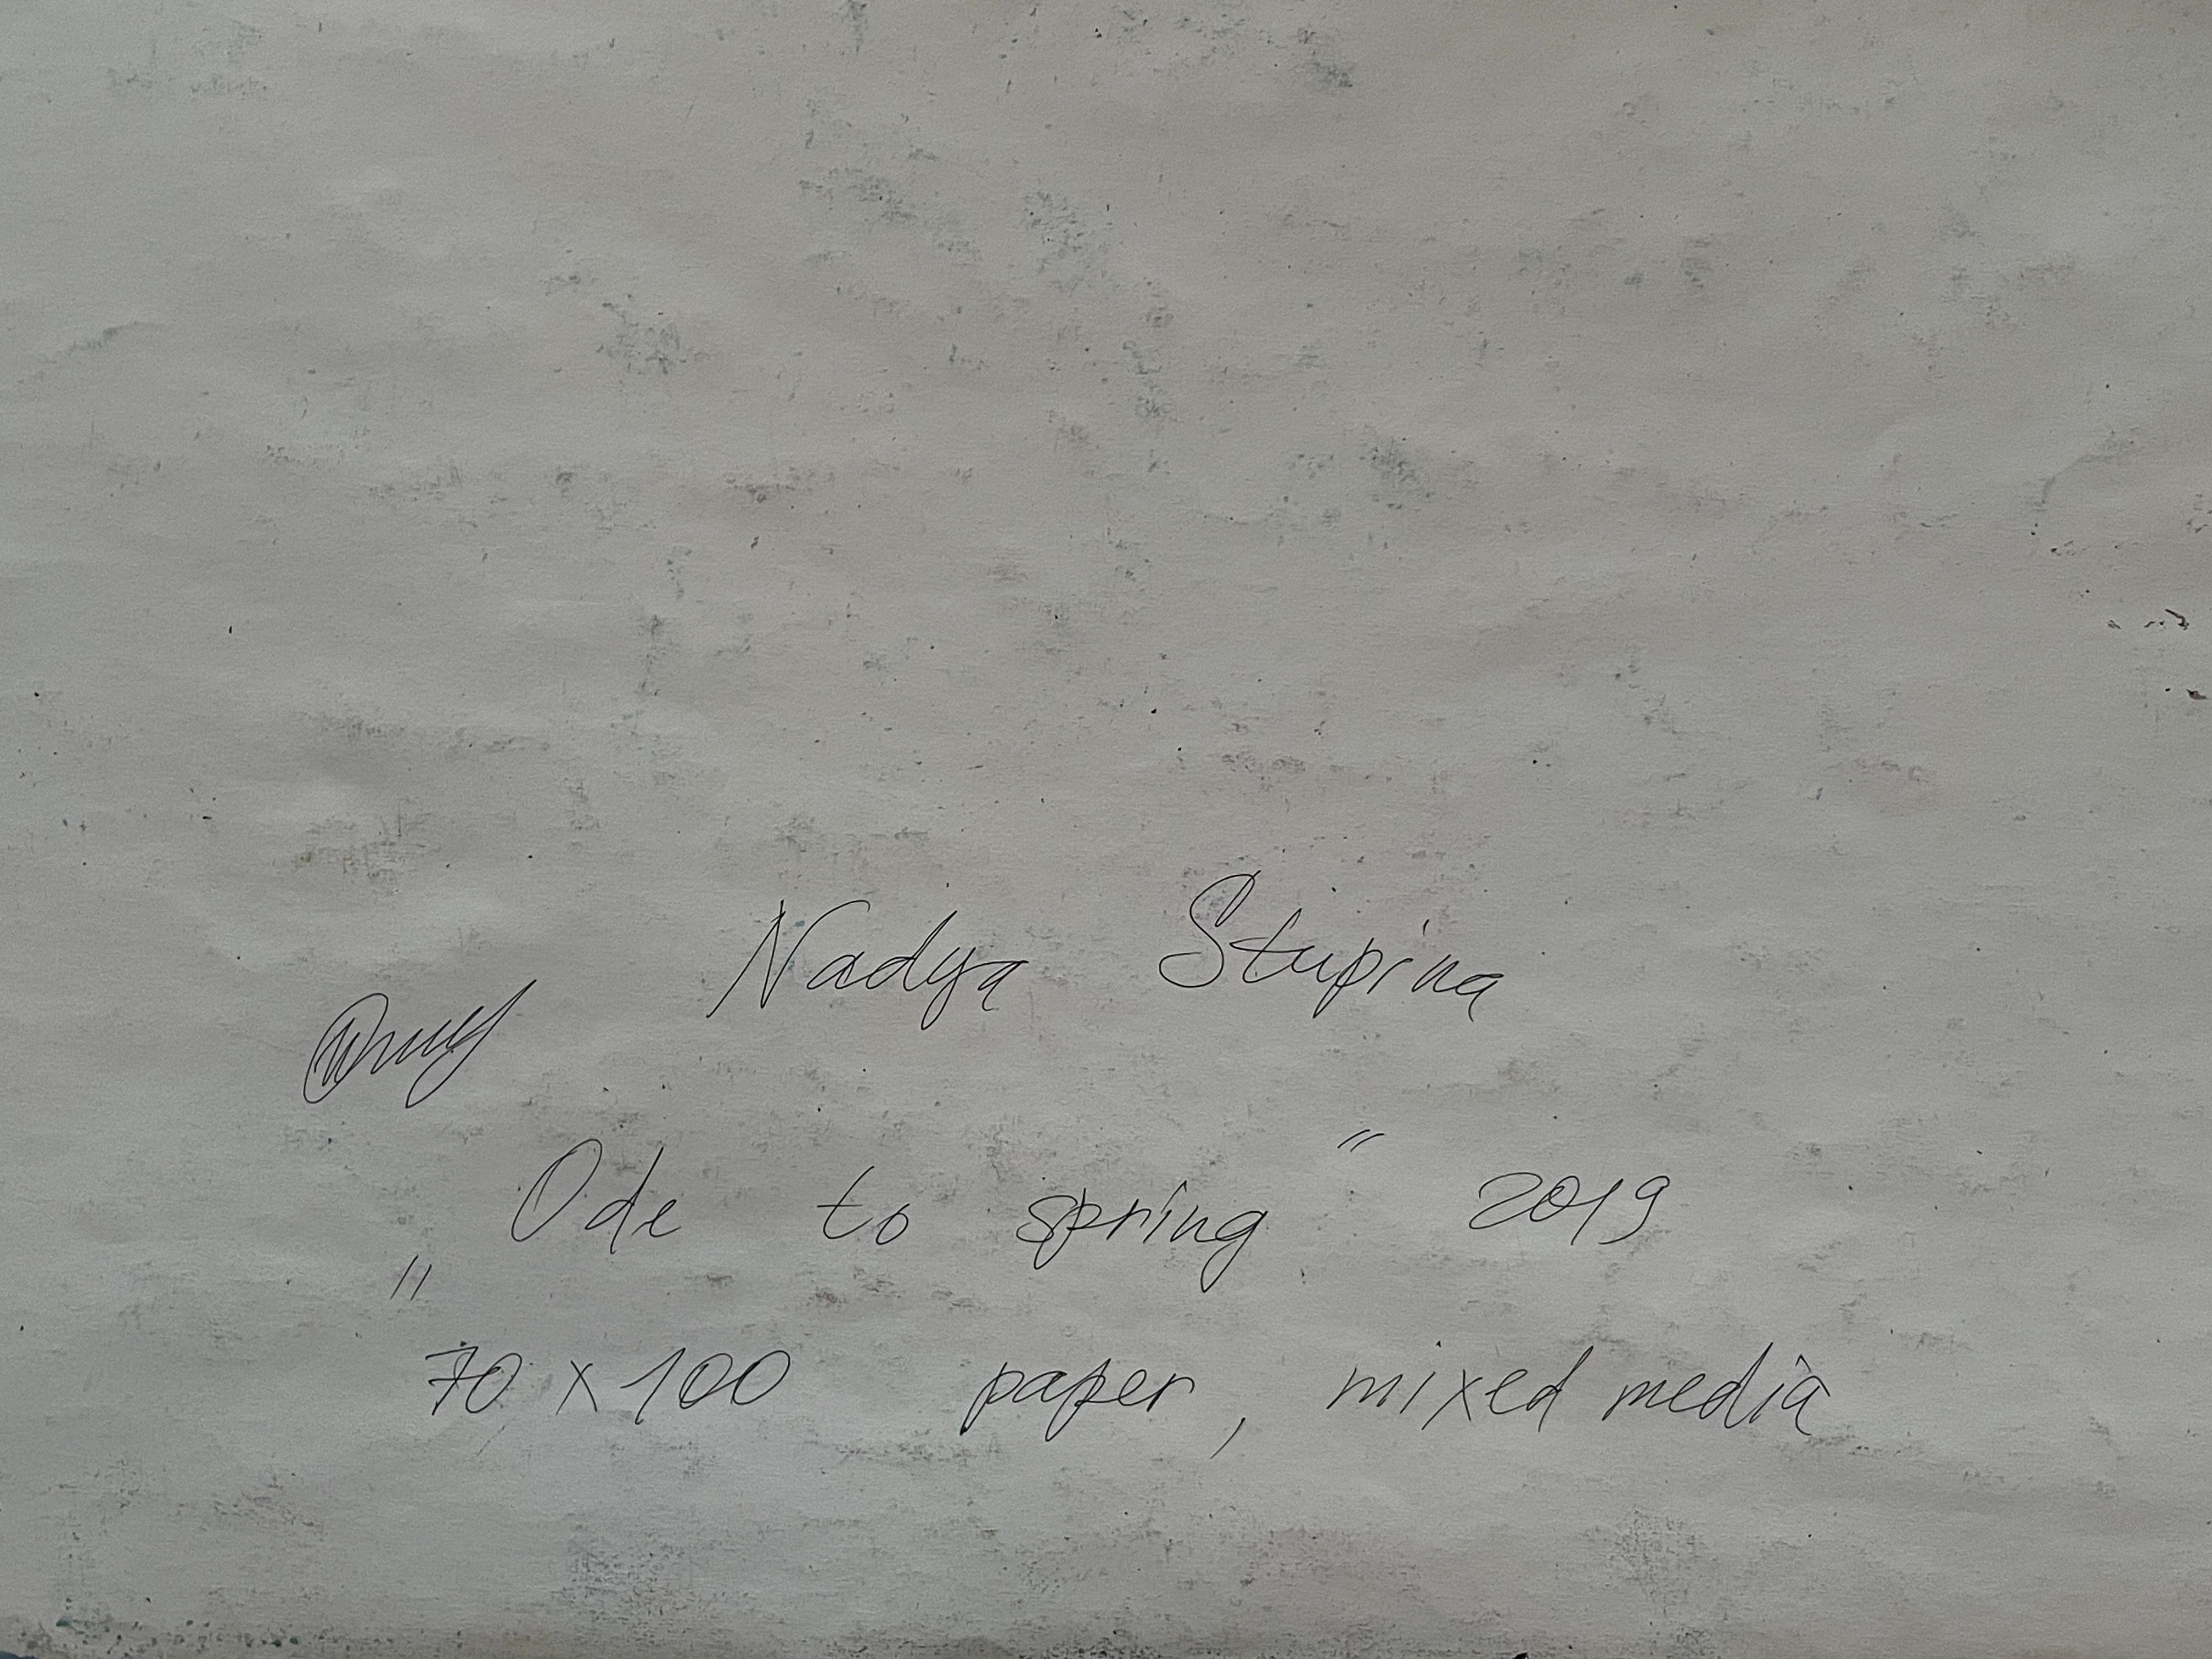 Nadya Stupina
„Ode to spring" 2019
70 x 100 paper, mixed media